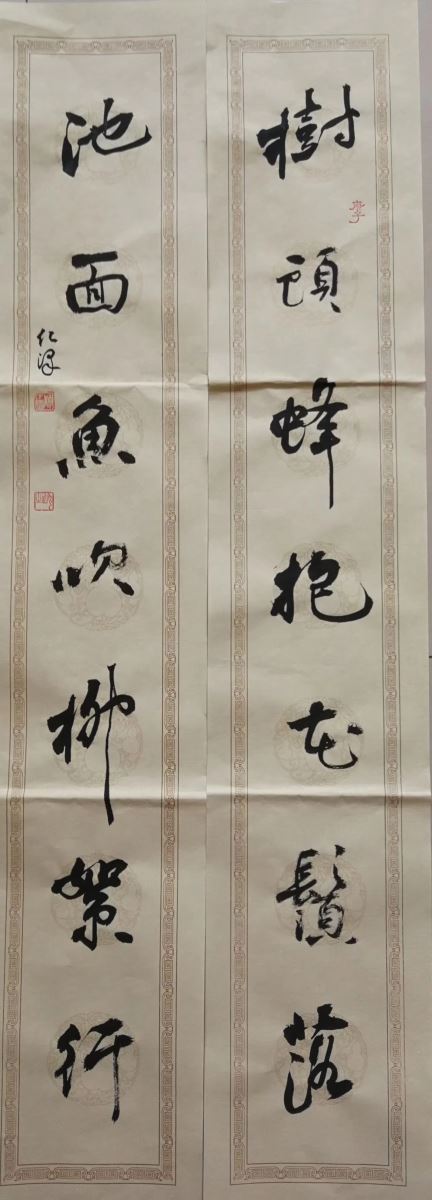 樹頭蜂抱花鬚落
池面魚吹柳絮行